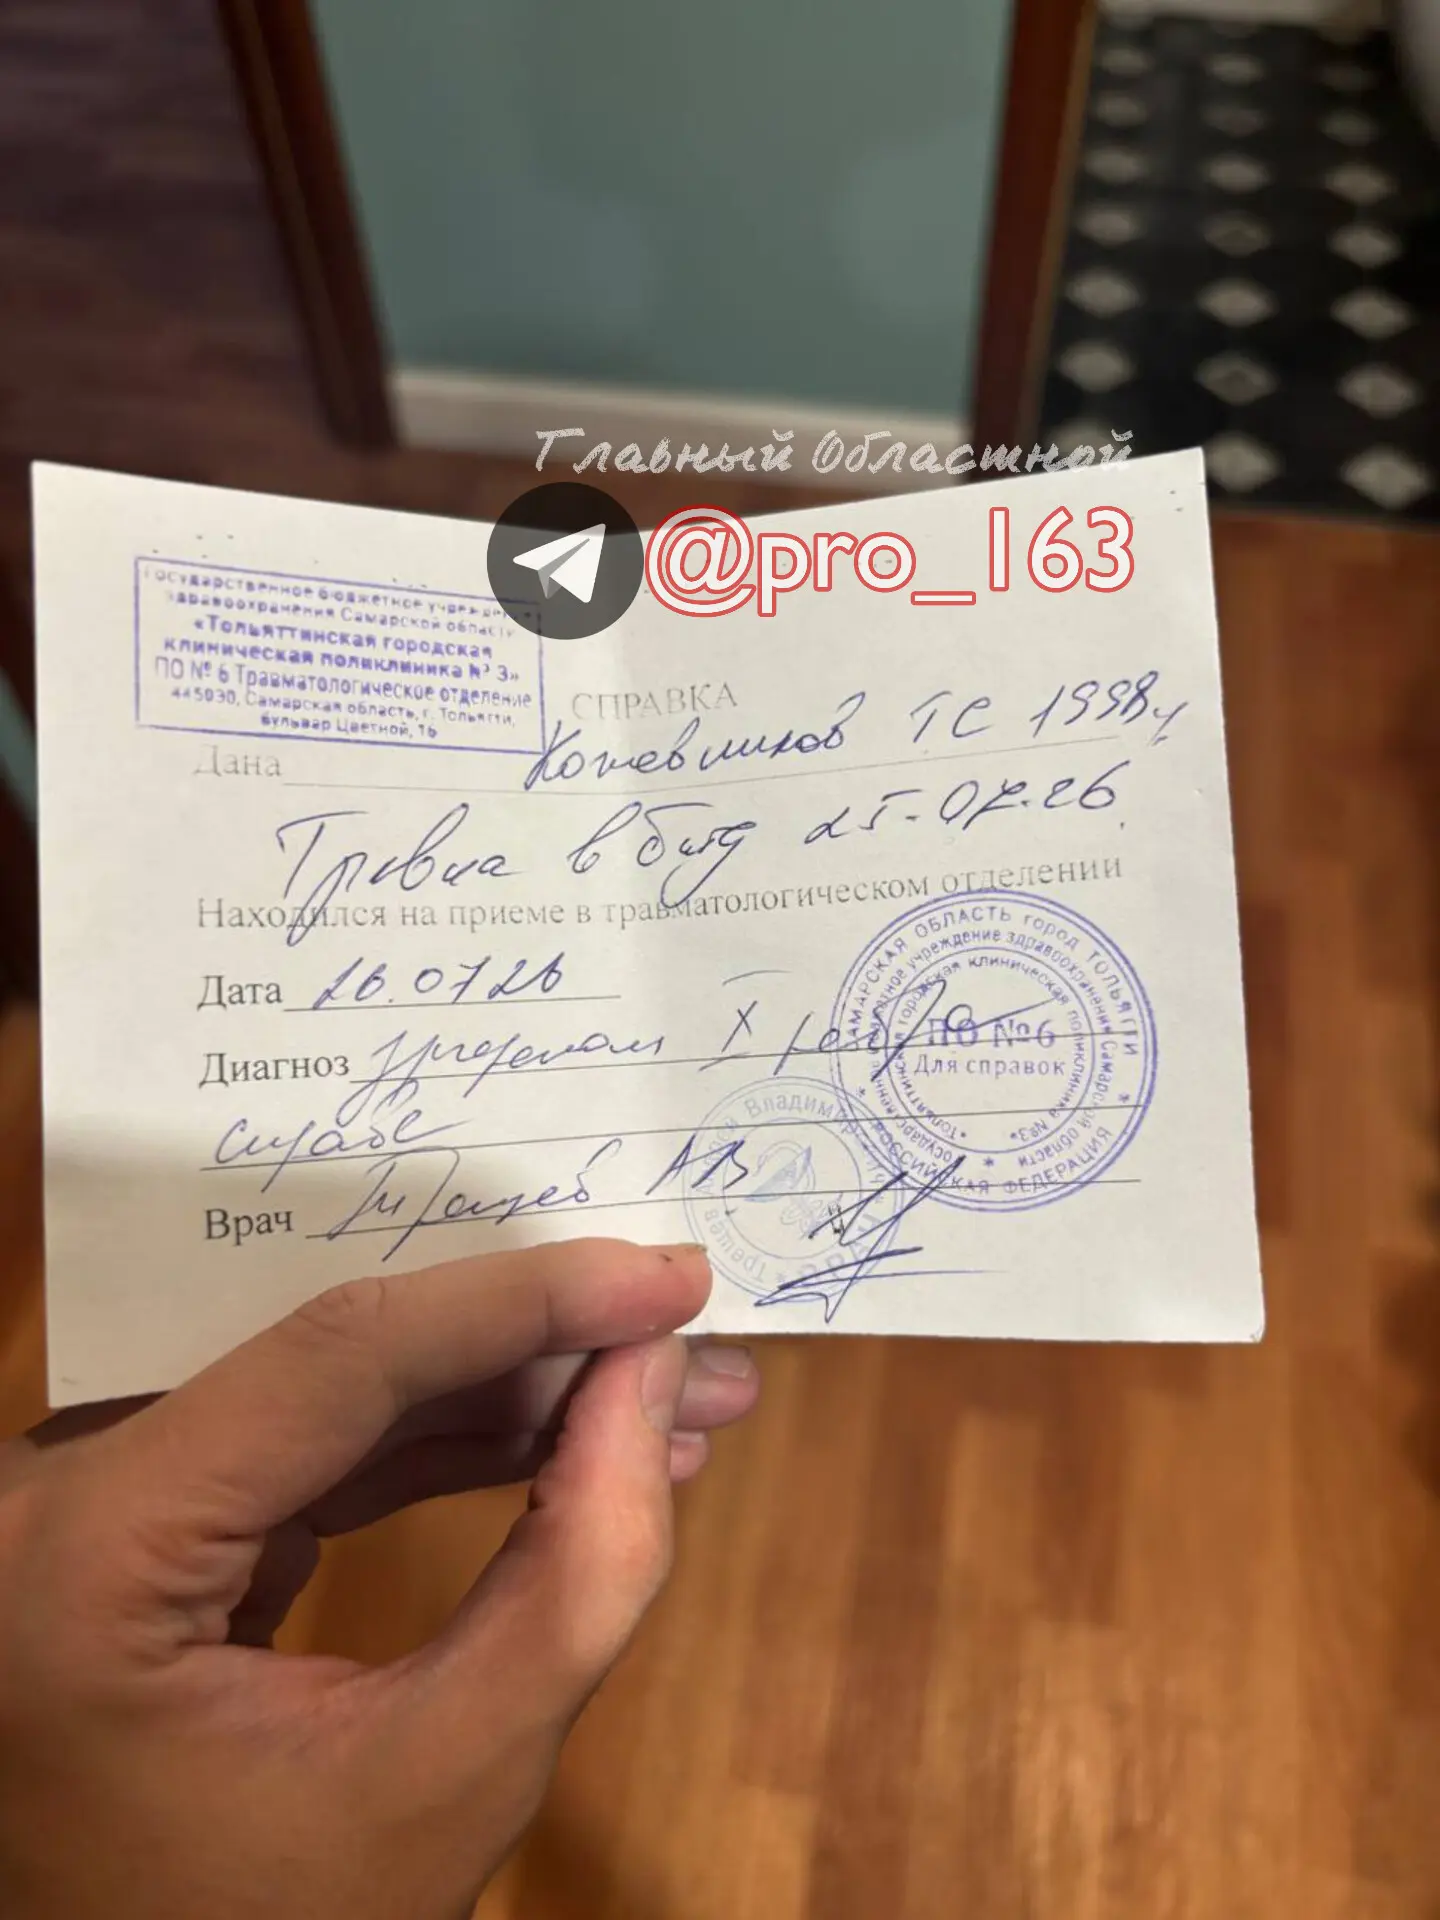 Главный Областной
@pro_163
Государственное бюджетное учреждение
здравоохранения Самарской области
«Тольяттинская городская
клиническая поликлиника № 3»
ПО № 6 Травматологическое отделение
445030, Самарская область, г. Тольятти,
бульвар Цветной, 16
СПРАВКА
Дана Кожевников ТС 1998г
Травма в быту 25.07.26
Находился на приеме в травматологическом отделении
Дата 26.07 26
Диагноз X ребра
слева
Врач Трещев АВ
САМАРСКАЯ ОБЛАСТЬ город ТОЛЬЯТТИ * РОССИЙСКАЯ ФЕДЕРАЦИЯ *
Государственное бюджетное учреждение здравоохранения Самарской области
Тольяттинская городская клиническая поликлиника №3
ПО №6
Для справок
Трещев Владимирович